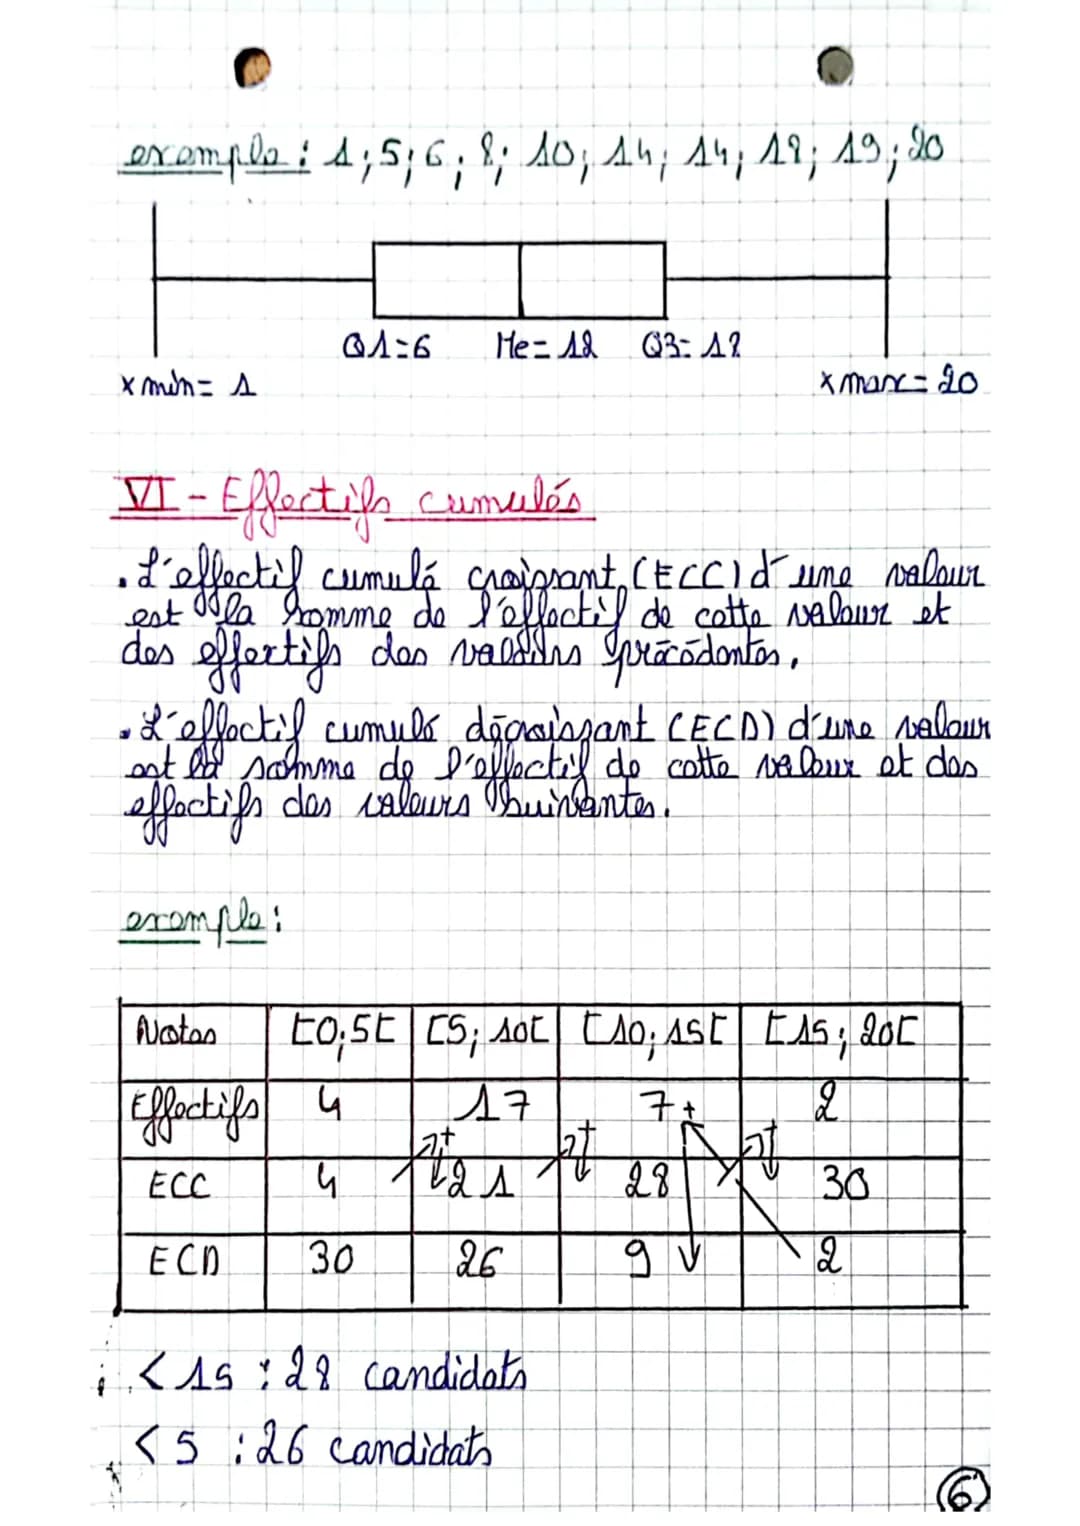 exemple : 1 ; 5 ; 6 ; 8 ; 10 ; 14 ; 14 ; 18 ; 19 ; 20
Q1=6 Me= 12 Q3= 18
x min= 1 x max= 20
VI - Effectifs cumulés
. L'effectif cumulé croissant (ECC) d'une valeur
est la somme de l'effectif de cette valeur et
des effectifs des valeurs précédentes.
. L'effectif cumulé décroissant (ECD) d'une valeur
est la somme de l'effectif de cette valeur et des
effectifs des valeurs suivantes.
exemple :
Notes [0;5[ [5; 10[ [10; 15[ [15; 20[
Effectifs 4 17 7 + 2
+ + +
ECC 4 21 28 30
ECD 30 26 9 2
< 15 : 28 candidats
< 5 : 26 candidats
6